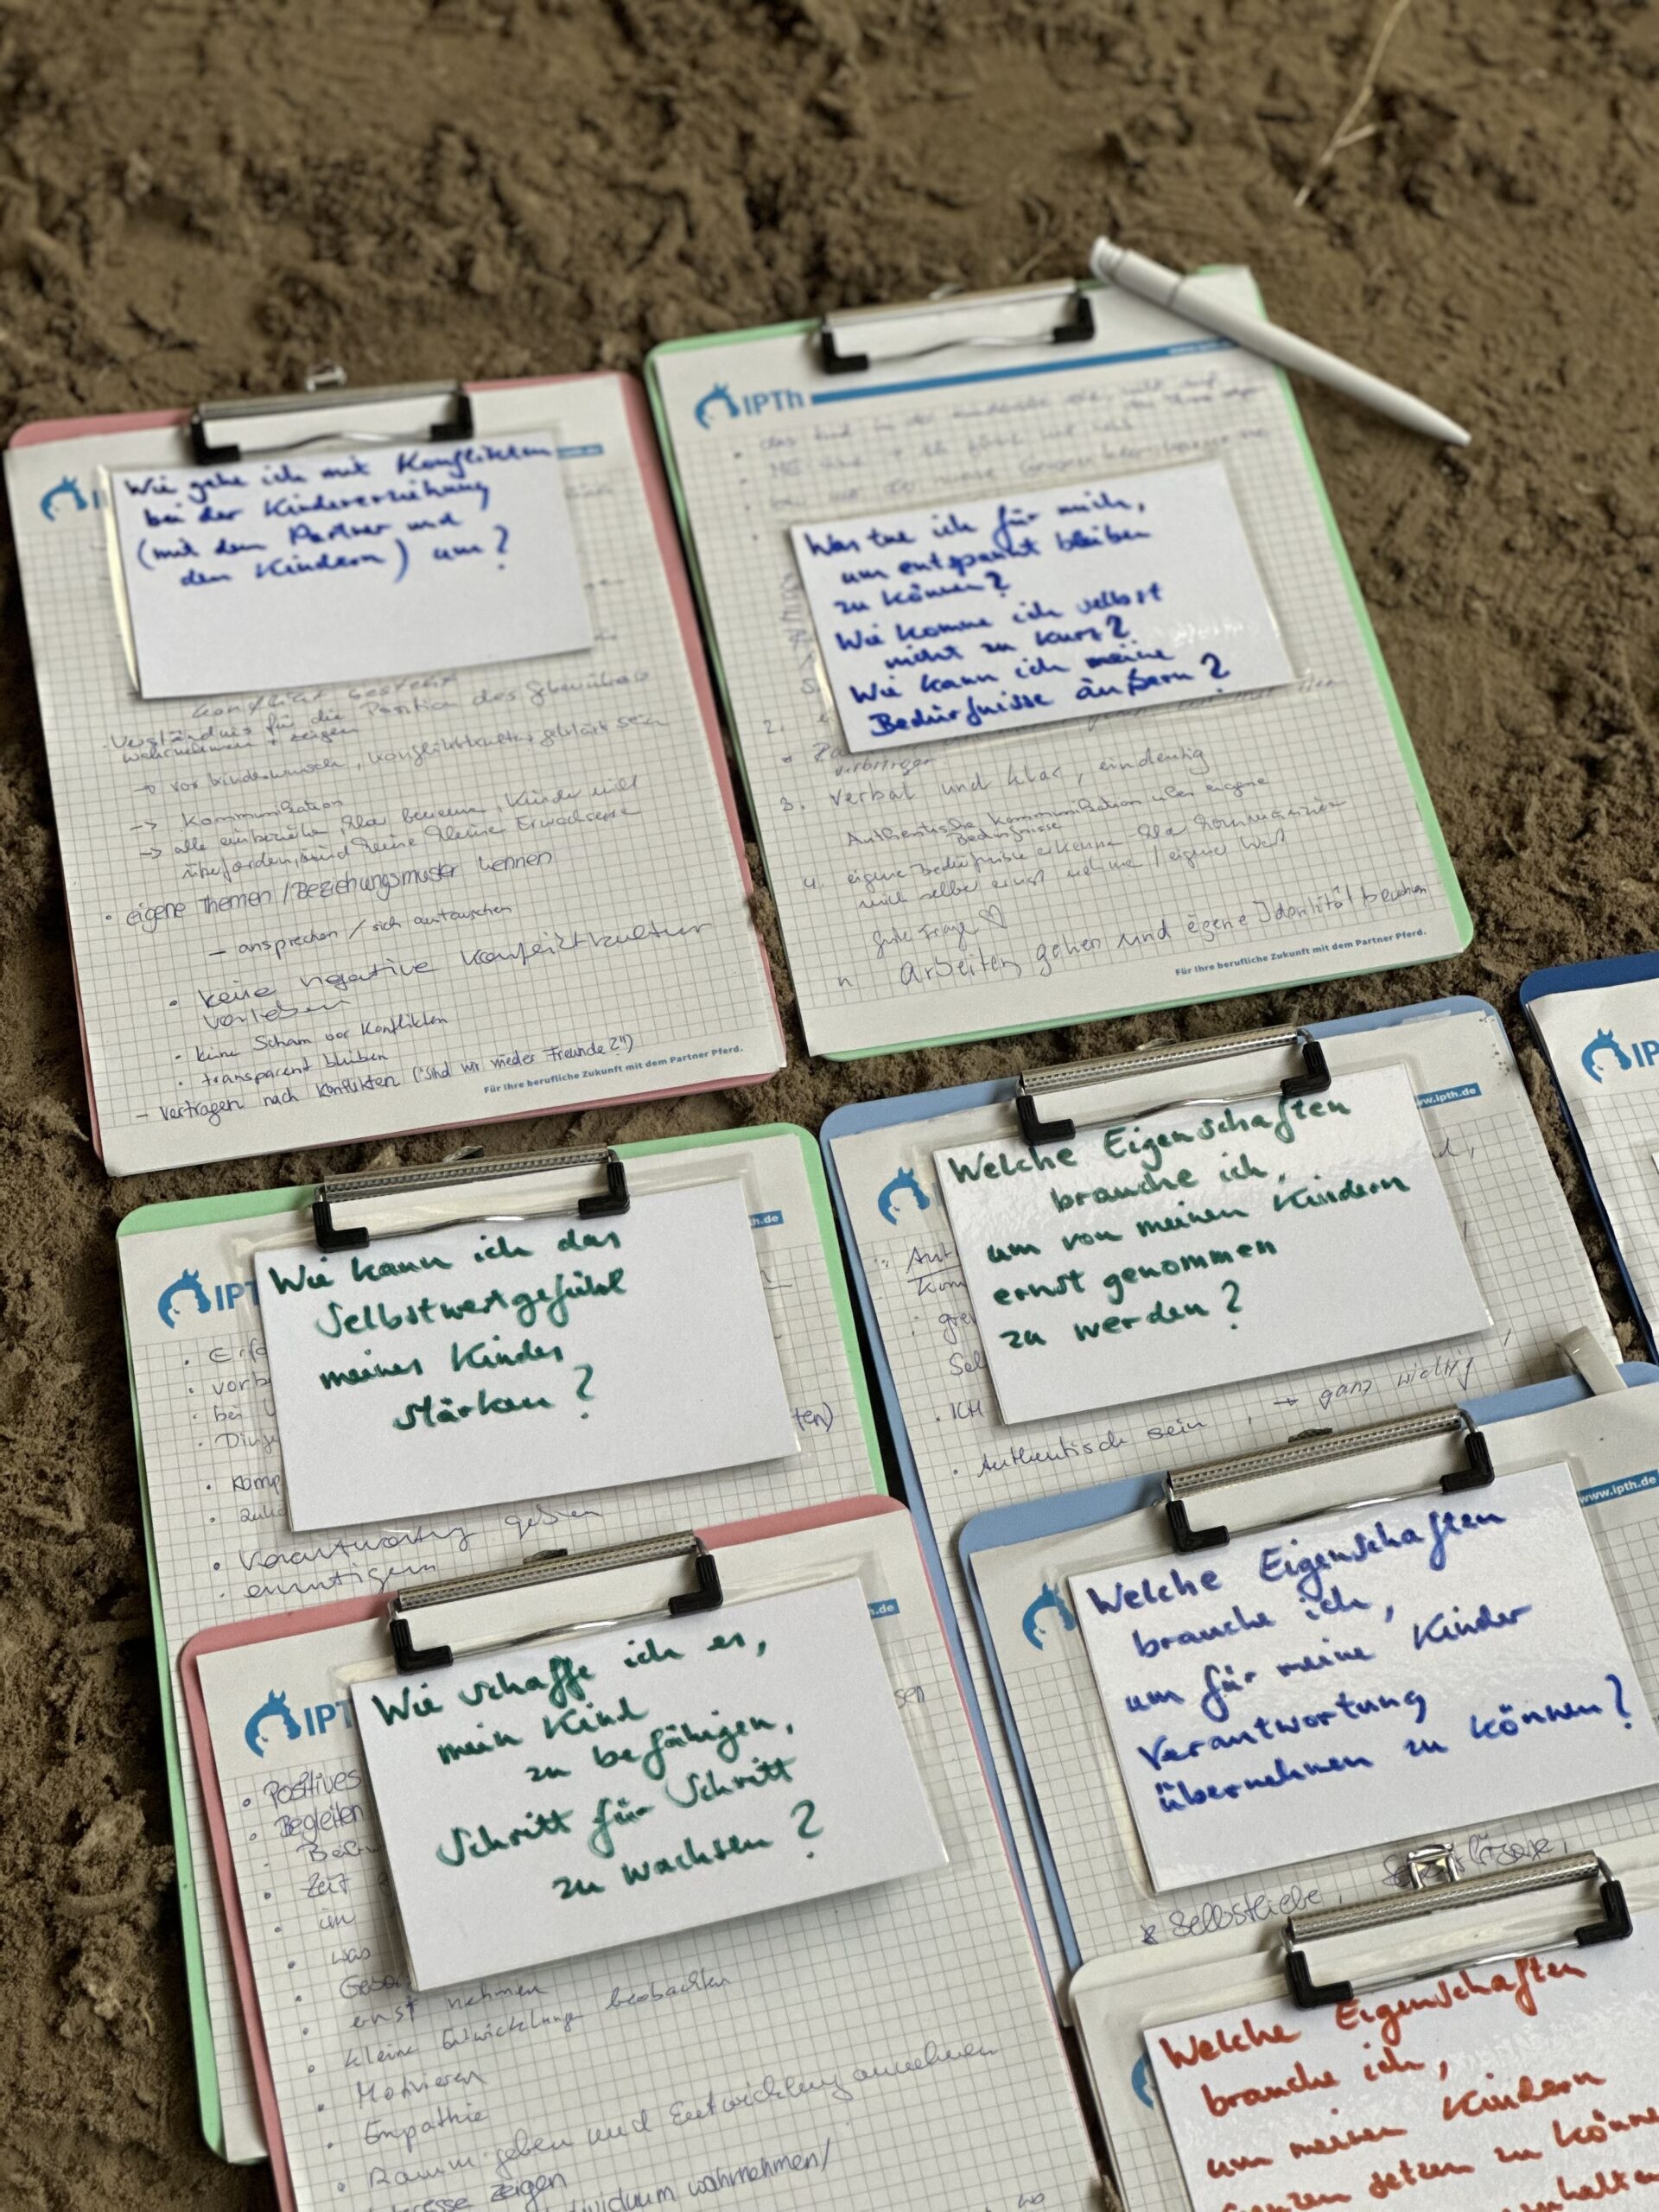 Wie gehe ich mit Konflikten
bei der Kindererziehung
(mit dem Partner und
den Kindern) um?
Konflikt besteht
Verständnis für die Position des Gegenübers
wahrnehmen + zeigen
→ vor Kinderwunsch, Konfliktkultur geklärt sein
→ Kommunikation
→ alle einbeziehen, klar benennen, Kinder nicht
überfordern, sind keine kleine Erwachsene
• eigene Themen / Beziehungsmuster kennen
– ansprechen / sich austauschen
• keine negative Konfliktkultur
vorleben
• keine Scham vor Konflikten
• transparent bleiben
– vertragen nach Konflikten ("Sind wir wieder Freunde?")
Für Ihre berufliche Zukunft mit dem Partner Pferd.
IPTh
Was tue ich für mich,
um entspannt bleiben
zu können?
Wie komme ich selbst
nicht zu kurz?
Wie kann ich meine
Bedürfnisse äußern?
2.
3. Verbal und klar, eindeutig
Authentische Kommunikation über eigene
Bedürfnisse
4. eigene Bedürfnisse erkennen klar kommunizieren
mich selber ernst nehmen / eigener Wert
gute Frage ♡
arbeiten gehen und eigene Identität
Für Ihre berufliche Zukunft mit dem Partner Pferd.
IPT
h.de
Wie kann ich das
Selbstwertgefühl
meines Kindes
stärken?
ten)
• Verantwortung geben
• ermutigen
www.ipth.de
Welche Eigenschaften
brauche ich,
um von meinen Kindern
ernst genommen
zu werden?
• ICH
→ ganz wichtig
• Authentisch sein
IP
IPT
.de
Wie schaffe ich es,
mein Kind
zu befähigen,
Schritt für Schritt
zu wachsen?
• Positives
• Begleiten
• Zeit
• im
• was
• ernst nehmen
• kleine Entwicklungen beobachten
• Motivieren
• Empathie
• Raum geben und Entwicklung annehmen
zeigen
wahrnehmen/
www.ipth.de
Welche Eigenschaften
brauche ich,
um für meine Kinder
Verantwortung
übernehmen zu können?
* Selbstliebe,
Welche Eigenschaften
brauche ich,
um meinen Kindern
setzen zu könne